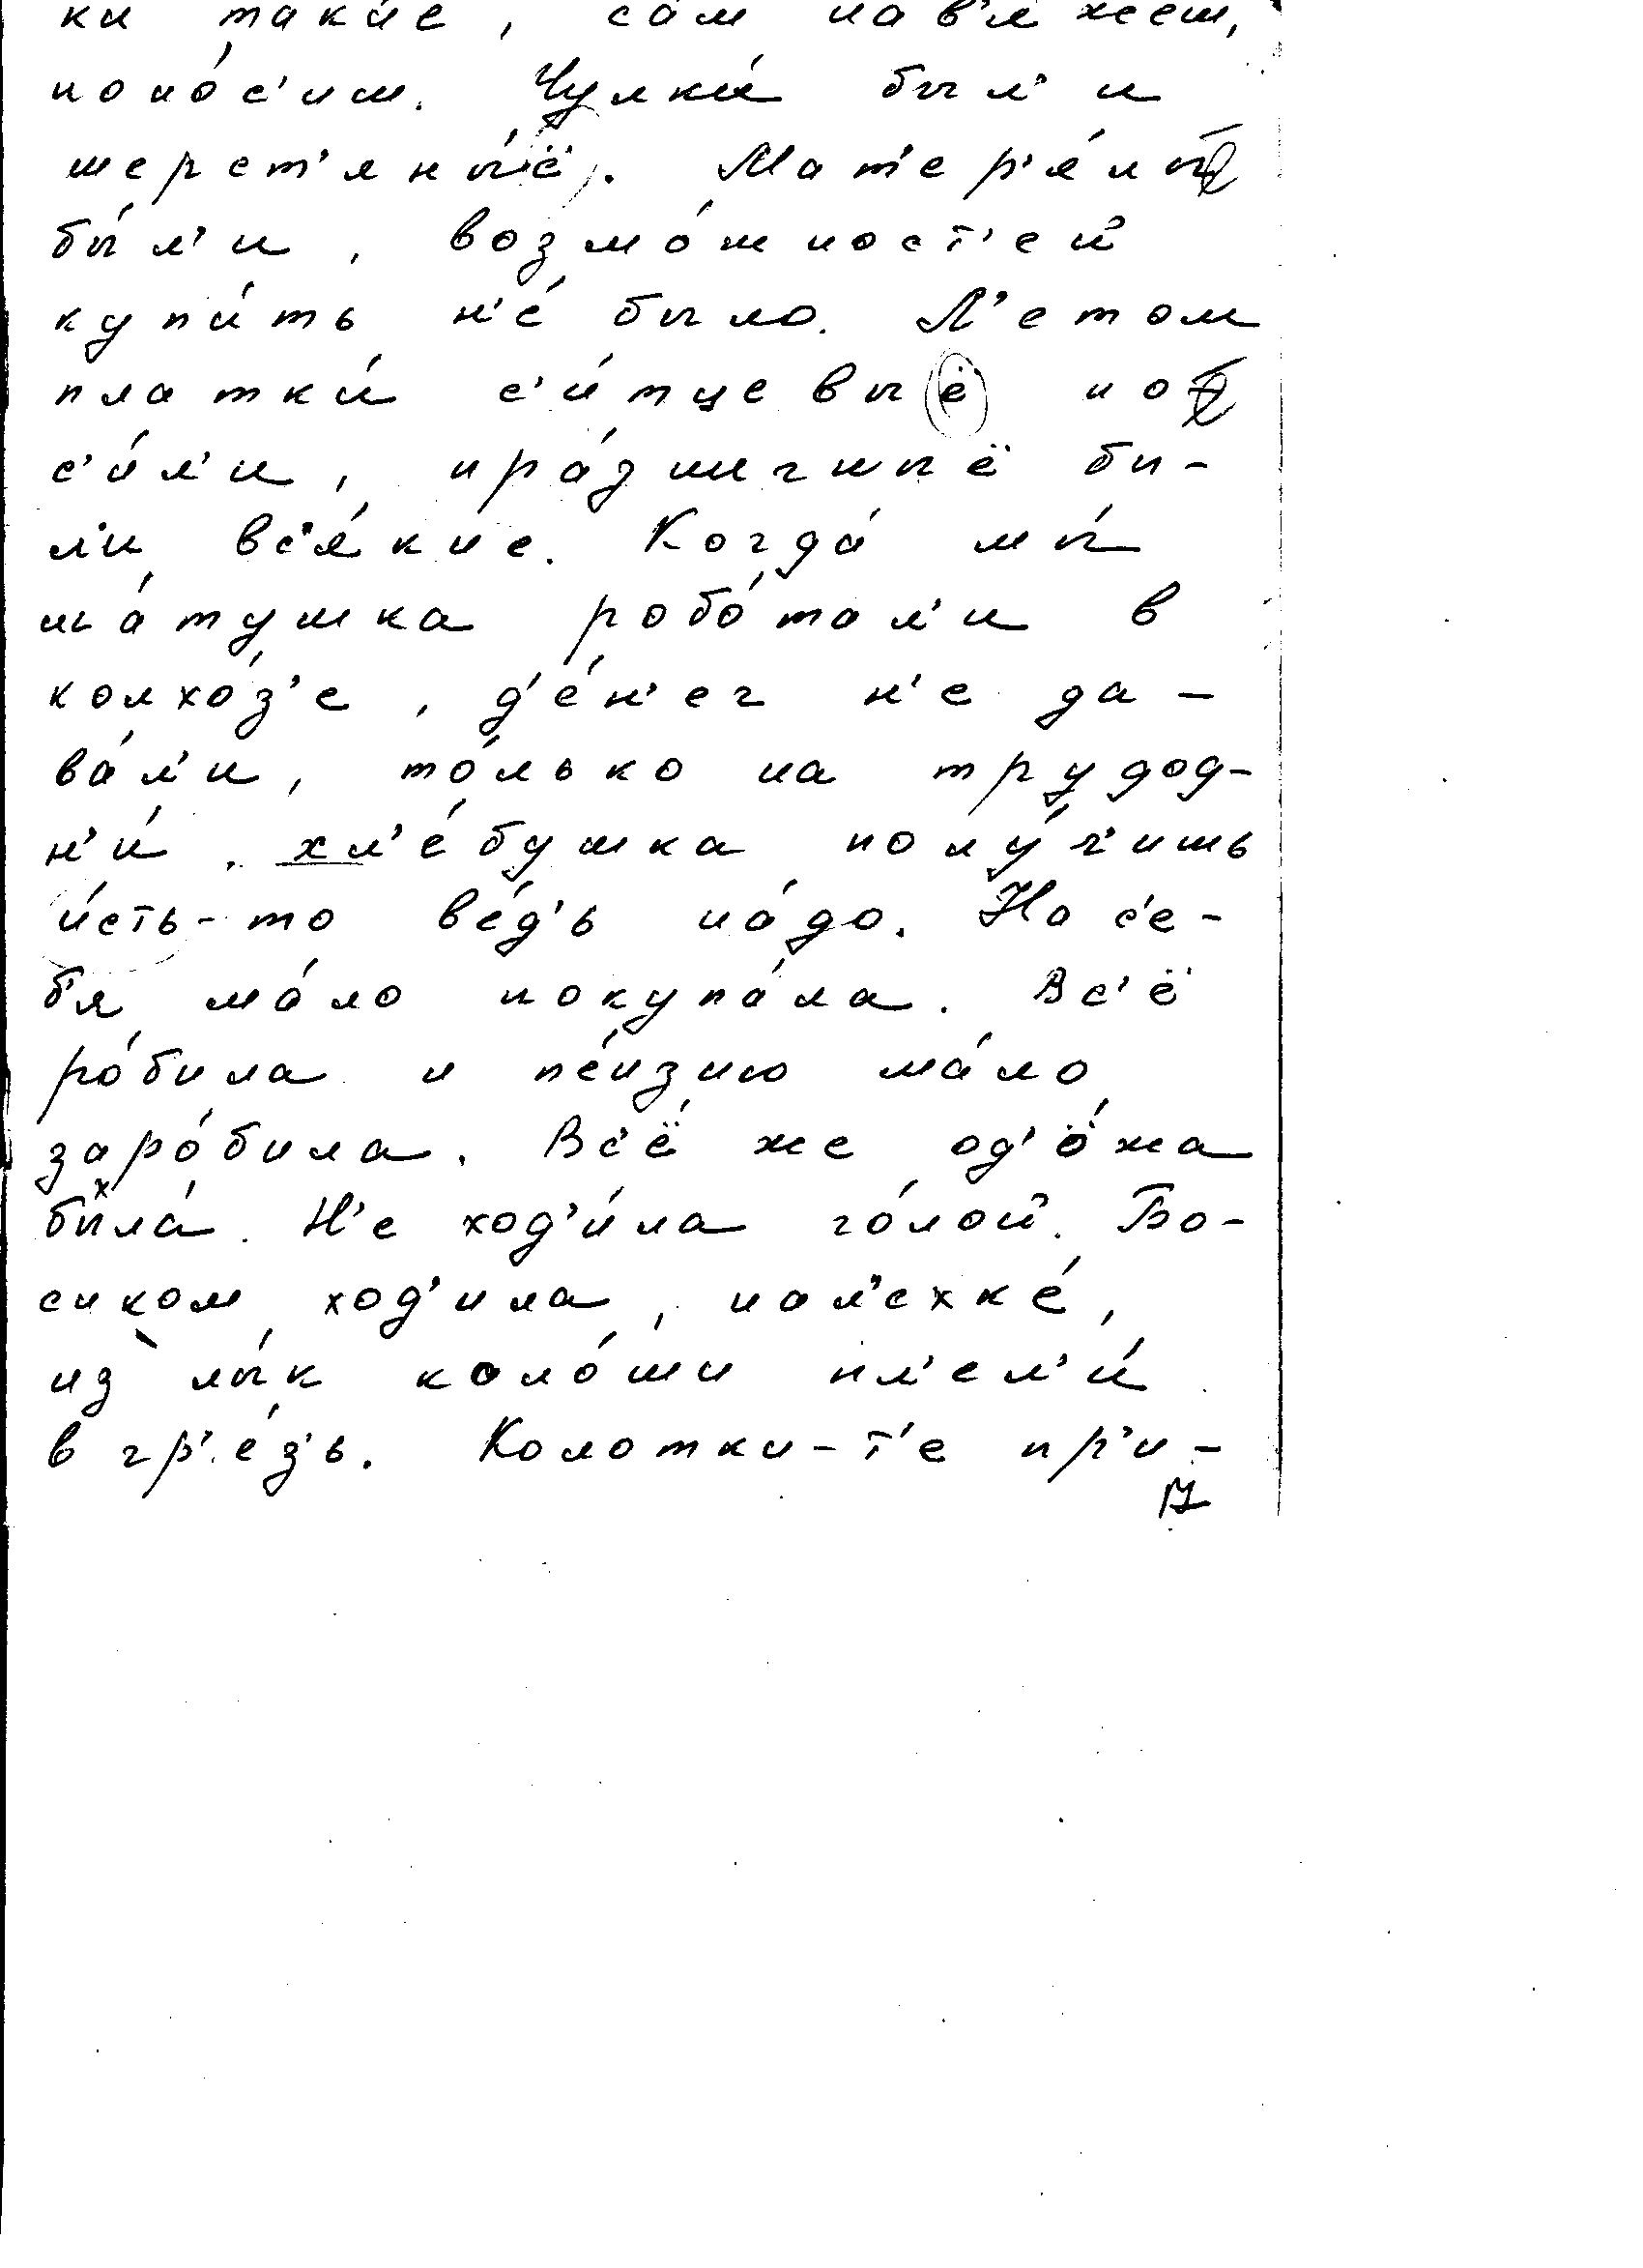 ки таки́е, са́м нав'я́жеш,
поно́с'иш. Чулки́ был'и
шерст'яны́ё. Мат'ер'я́лы
бы́л'и, возмо́жност'ей
купи́ть н'е́ было. Л'етом
платки́ с'и́тцевыё но
с'и́л'и, пра́зничныё бы-
ли вс'я́кие. Когда́ мы́
ма́тушка робо́тал'и в
колхо́з'е, д'е́н'ег н'е да-
ва́л'и, то́лько на трудод-
н'и́, хл'е́бушка полу́ч'ишь
и́сть-то ве́д'ь на́до. На с'е-
б'я ма́ло покупа́ла. Вс'ё
ро́била и пе́нзию ма́ло
заро́била. Вс'ё же од'о́жа
была́. Н'е ход'и́ла го́лой. Бо-
сиком ход'ила, нал'ехке́,
из лы́к коло́ши пл'ел'и́
в гр'е́з'ь. Колотки-т'е пр'и-
17